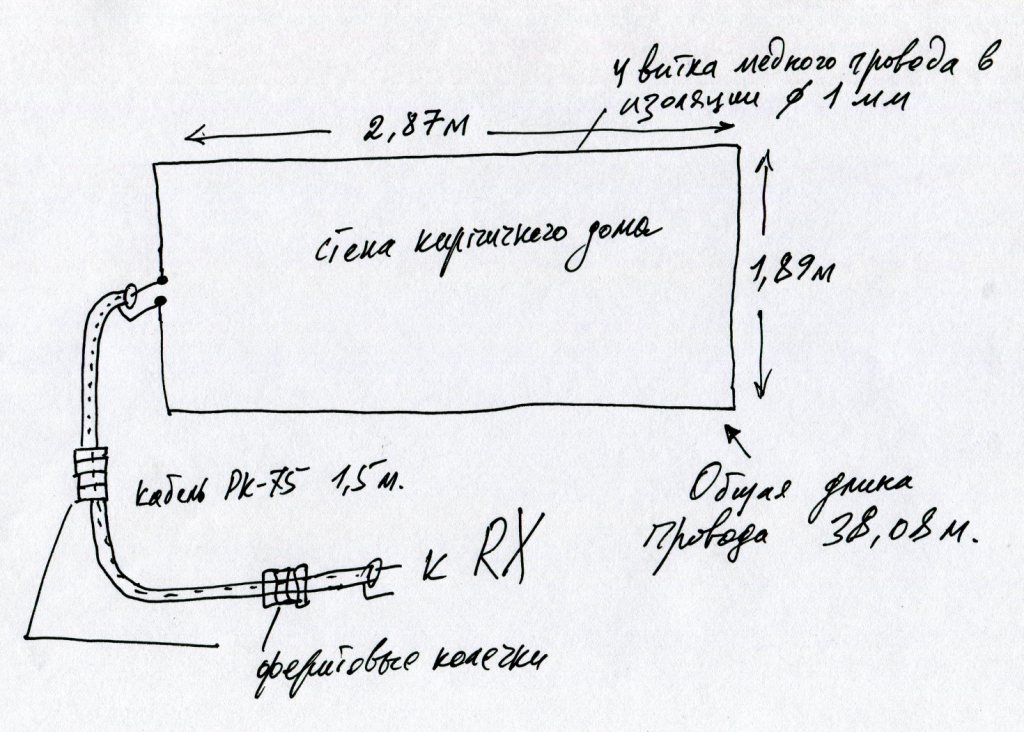 4 витка медного провода в
изоляции ϕ 1 мм
2,87м
стена кирпичного дома
1,89м
кабель РК-75 1,5 м.
Общая длина
провода 38,08 м.
к RX
феритовые колечки